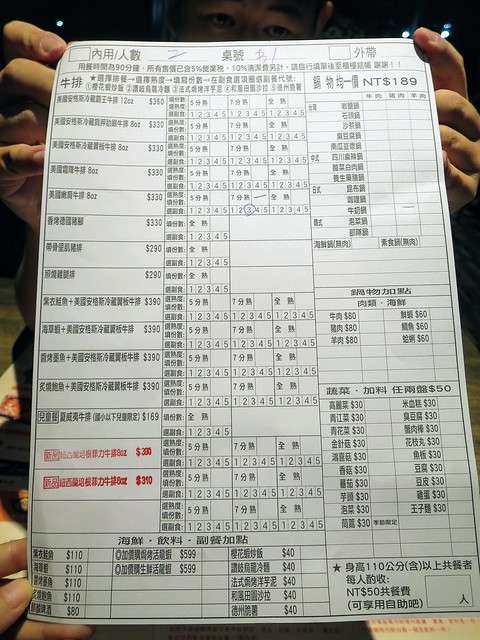 內用/人數 2 桌號 外帶
用餐時間為90分鐘，所有售價已含5%營業稅，10%清潔費另計，請自行填單後至櫃檯結帳 謝謝！！
牛排 ★選擇排餐→選擇熟度→填寫份數→在副食選項圈選副餐代號:
①櫻花蝦炒飯 ②讚岐烏龍冷麵 ③法式焗烤洋芋泥 ④和風田園沙拉 ⑤德州脆薯
鍋物均一價 NT$189
美國安格斯冷藏霸王牛排 12oz $360
美國安格斯冷藏肩胛肋眼牛排 8oz $330
美國安格斯冷藏翼板牛排 8oz $330
美國霜降牛排 8oz $330
美國嫩肩牛排 8oz $330
香烤德國豬腳 $330
帶骨里肌豬排 $290
照燒雞腿排 $290
紫衣鮭魚+美國安格斯冷藏翼板牛排 $390
海草蝦+美國安格斯冷藏翼板牛排 $390
醬烤墨魚+美國安格斯冷藏翼板牛排 $390
炙燒鮑魚+美國安格斯冷藏翼板牛排 $390
兒童餐 夏威夷牛排 (國小以下兒童限定) $169
新品 紐西蘭培根菲力牛排8oz
新品 紐西蘭培根菲力牛排8oz $310
選熟度: 5分熟 7分熟 全熟
填份數:
選副食: 1 2 3 4 5 1 2 3 4 5 1 2 3 4 5
牛肉 豬肉 羊肉
台灣 石頭鍋
沙茶鍋
臭豆腐鍋
南瓜豆漿鍋
中式 四川麻辣鍋
酸菜白肉鍋
養生藥膳鍋
日式 昆布鍋
味噌鍋
牛奶鍋
韓式 泡菜鍋
部隊鍋
海鮮鍋(無肉) 素食鍋(無肉)
鍋物加點
肉類．海鮮
牛肉 $80 鮮蝦 $60
豬肉 $80 鯛魚 $60
羊肉 $80 蛤蜊 $60
蔬菜．加料 任兩盤$50
高麗菜 $30 米血糕 $30
青江菜 $30 臭豆腐 $30
青花菜 $30 蟹肉棒 $30
金針菇 $30 花枝丸 $30
鴻喜菇 $30 魚板 $30
香菇 $30 豆腐 $30
蕃茄 $30 豆皮 $30
芋頭 $30 雞蛋 $30
泡菜 $30 王子麵 $30
茼蒿 $30 季節限定
海鮮．飲料．副餐加點
紫衣鮭魚 $110 ◎加價購焗烤活龍蝦 $599 櫻花蝦炒飯 $40
海草蝦 $110 ◎加價購生鮮活龍蝦 $599 讚岐烏龍冷麵 $40
醬烤墨魚 $110 法式焗烤洋芋泥 $40
炙燒鮑魚 $110 和風田園沙拉 $40
啤酒 $80 德州脆薯 $40
★ 身高110公分(含)以上共餐者
每人酌收:
NT$50共餐費 人
(可享用自助吧)